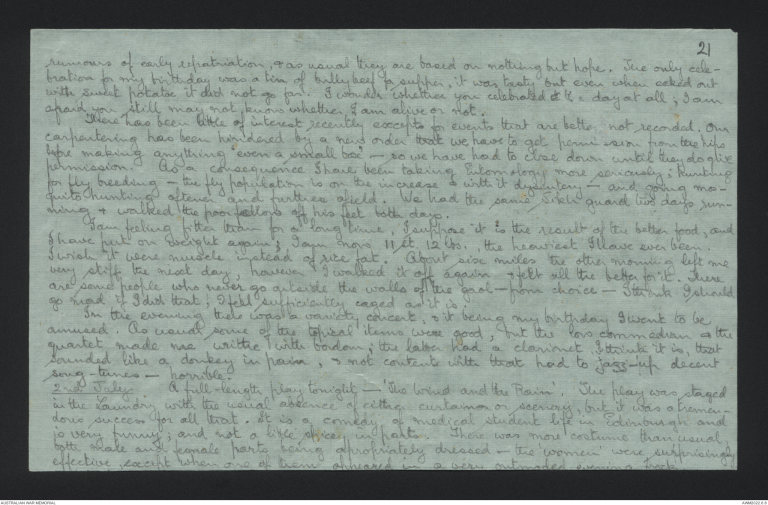 21
rumours of early repatriation, & as usual they are based on nothing but hope. The only cele-
bration for my birthday was a tin of bully beef for supper, it was tasty but even when eked out
with sweet potatoe it did not go far. I wonder whether you celebrated the day at all; I am
afraid you still may not know whether I am alive or not.
There has been little of interest recently except for events that are better not recorded. Our
carpentering has been hindered by a new order that we have to get permission from the nips
before making anything even a small box — so we have had to close down until they do give
permission. As a consequence I have been taking Entomology more seriously; hunting
for fly breeding — the fly population is on the increase & with it dysentery — and going mo-
quito hunting oftener and further afield. We had the same Sikh guard two days run-
ning & walked the poor fellow off his feet both days.
I am feeling fitter than for a long time, I suppose it is the result of the better food, and
I have put on weight again; I am now 11 st. 12 lbs., the heaviest I have ever been.
I wish it were muscle instead of rice fat. About six miles the other morning left me
very stiff the next day, however I walked it off again & felt all the better for it. There
are some people who never go outside the walls of the gaol — from choice — I think I should
go mad if I did that; I feel sufficiently caged as it is.
In the evening there was a variety concert, & it being my birthday I went to be
amused. As usual some of the topical items were good, but the low comedian & the
quartet made me writhe with boredom; the latter had a clarionet, I think it is, that
sounded like a donkey in pain, & not content with that had to jazz-up decent
song-tunes — horrible.
2nd July. A full-length play tonight — 'The Wind and the Rain'. The play was staged
in the Laundry with the usual absence of either curtains or scenery, but it was a tremen-
dous success for all that. It is a comedy of medical student life in Edinburgh and
is very funny; and not a little in parts. There was more costume than usual,
both male and female parts being apropriately dressed — the 'women' were surprisingly
effective, except when one of them appeared in a very outmoded evening frock.
AUSTRALIAN WAR MEMORIAL
AWM2022.6.8